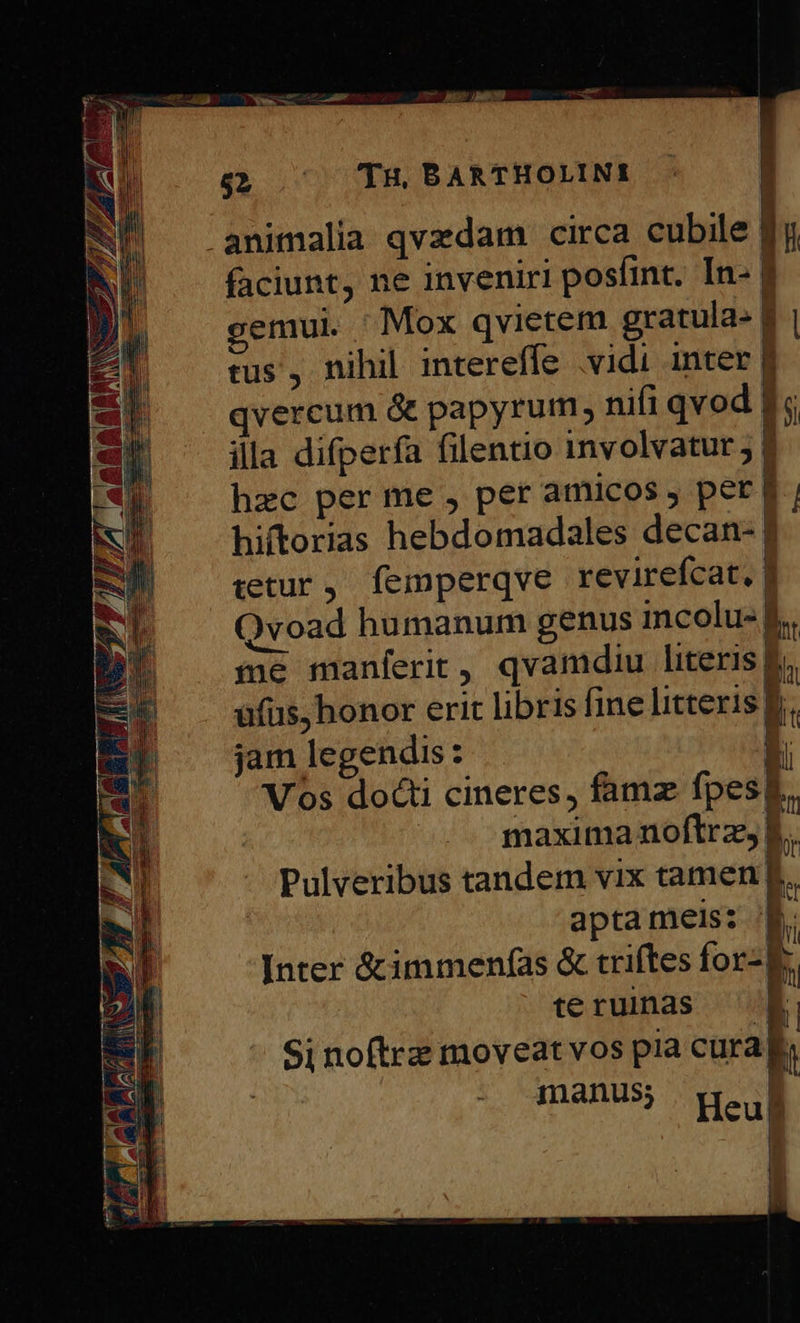 52 TH, BARTHOLINI
animalia qvædam circa cubile
faciunt, ne inveniri posſint. In-
gemui. Mox qvietem gratula-
tus, nihil intereſſe vidi inter
qvercum & papyrum, niſi qvod
illa diſperſa ſilentio involvatur;
hæc per me, per amicos, per
hiſtorias hebdomadales decan-
tetur, ſemperqve revireſcat.
Qvoad humanum genus incolu-
me manſerit, qvamdiu literis
uſus, honor erit libris ſine litteris
jam legendis:
Vos docti cineres, famæ ſpes
maxima noſtræ,
Pulveribus tandem vix tamen
apta meis:
Inter & immenſas & triſtes for-
te ruinas
Si noſtræ moveat vos pia cura
manus;
Heu